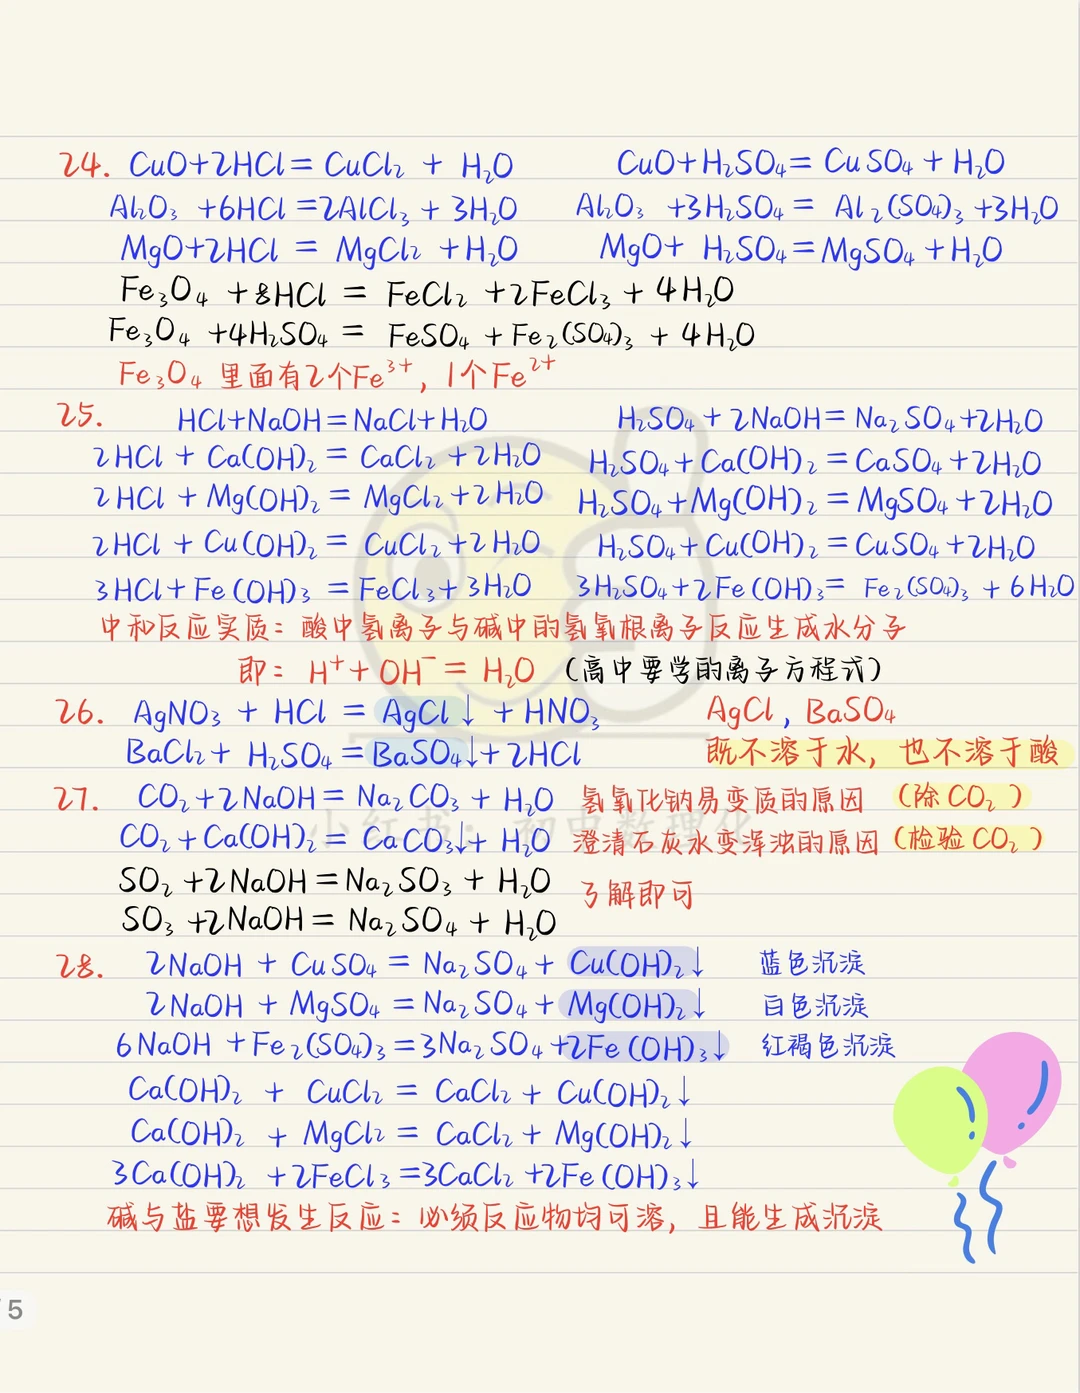 24. CuO+2HCl=CuCl₂ + H₂O    CuO+H₂SO₄=CuSO₄+H₂O
Al₂O₃ +6HCl=2AlCl₃+3H₂O    Al₂O₃ +3H₂SO₄= Al₂(SO₄)₃+3H₂O
MgO+2HCl = MgCl₂ +H₂O    MgO+ H₂SO₄=MgSO₄+H₂O
Fe₃O₄ +8HCl = FeCl₂ +2FeCl₃+4H₂O
Fe₃O₄ +4H₂SO₄ = FeSO₄+Fe₂(SO₄)₃ + 4H₂O
Fe₃O₄ 里面有2个Fe³⁺, 1个Fe²⁺
25. HCl+NaOH=NaCl+H₂O    H₂SO₄+2NaOH=Na₂SO₄+2H₂O
2HCl + Ca(OH)₂ = CaCl₂+2H₂O    H₂SO₄+Ca(OH)₂=CaSO₄+2H₂O
2HCl + Mg(OH)₂ = MgCl₂+2H₂O    H₂SO₄+Mg(OH)₂=MgSO₄+2H₂O
2HCl + Cu(OH)₂ = CuCl₂+2H₂O    H₂SO₄+Cu(OH)₂=CuSO₄+2H₂O
3HCl+Fe(OH)₃ =FeCl₃+3H₂O    3H₂SO₄+2Fe(OH)₃= Fe₂(SO₄)₃ + 6H₂O
中和反应实质: 酸中氢离子与碱中的氢氧根离子反应生成水分子
即: H⁺+OH⁻= H₂O (高中要学的离子方程式)
26. AgNO₃ + HCl = AgCl↓ + HNO₃    AgCl, BaSO₄
BaCl₂+ H₂SO₄=BaSO₄↓+2HCl    既不溶于水, 也不溶于酸
27. CO₂+2NaOH=Na₂CO₃ + H₂O 氢氧化钠易变质的原因 (除CO₂)
小红书: 初中数理化
CO₂+Ca(OH)₂= CaCO₃↓+ H₂O 澄清石灰水变浑浊的原因 (检验CO₂)
SO₂+2NaOH=Na₂SO₃ + H₂O 了解即可
SO₃ +2NaOH= Na₂SO₄ + H₂O
28. 2NaOH + CuSO₄ = Na₂SO₄+ Cu(OH)₂↓ 蓝色沉淀
2NaOH + MgSO₄ =Na₂SO₄+ Mg(OH)₂↓ 白色沉淀
6NaOH +Fe₂(SO₄)₃=3Na₂SO₄+2Fe(OH)₃↓ 红褐色沉淀
Ca(OH)₂ + CuCl₂ = CaCl₂ + Cu(OH)₂↓
Ca(OH)₂ + MgCl₂ = CaCl₂+ Mg(OH)₂↓
3Ca(OH)₂ +2FeCl₃=3CaCl₂+2Fe(OH)₃↓
碱与盐要想发生反应: 必须反应物均可溶, 且能生成沉淀
5